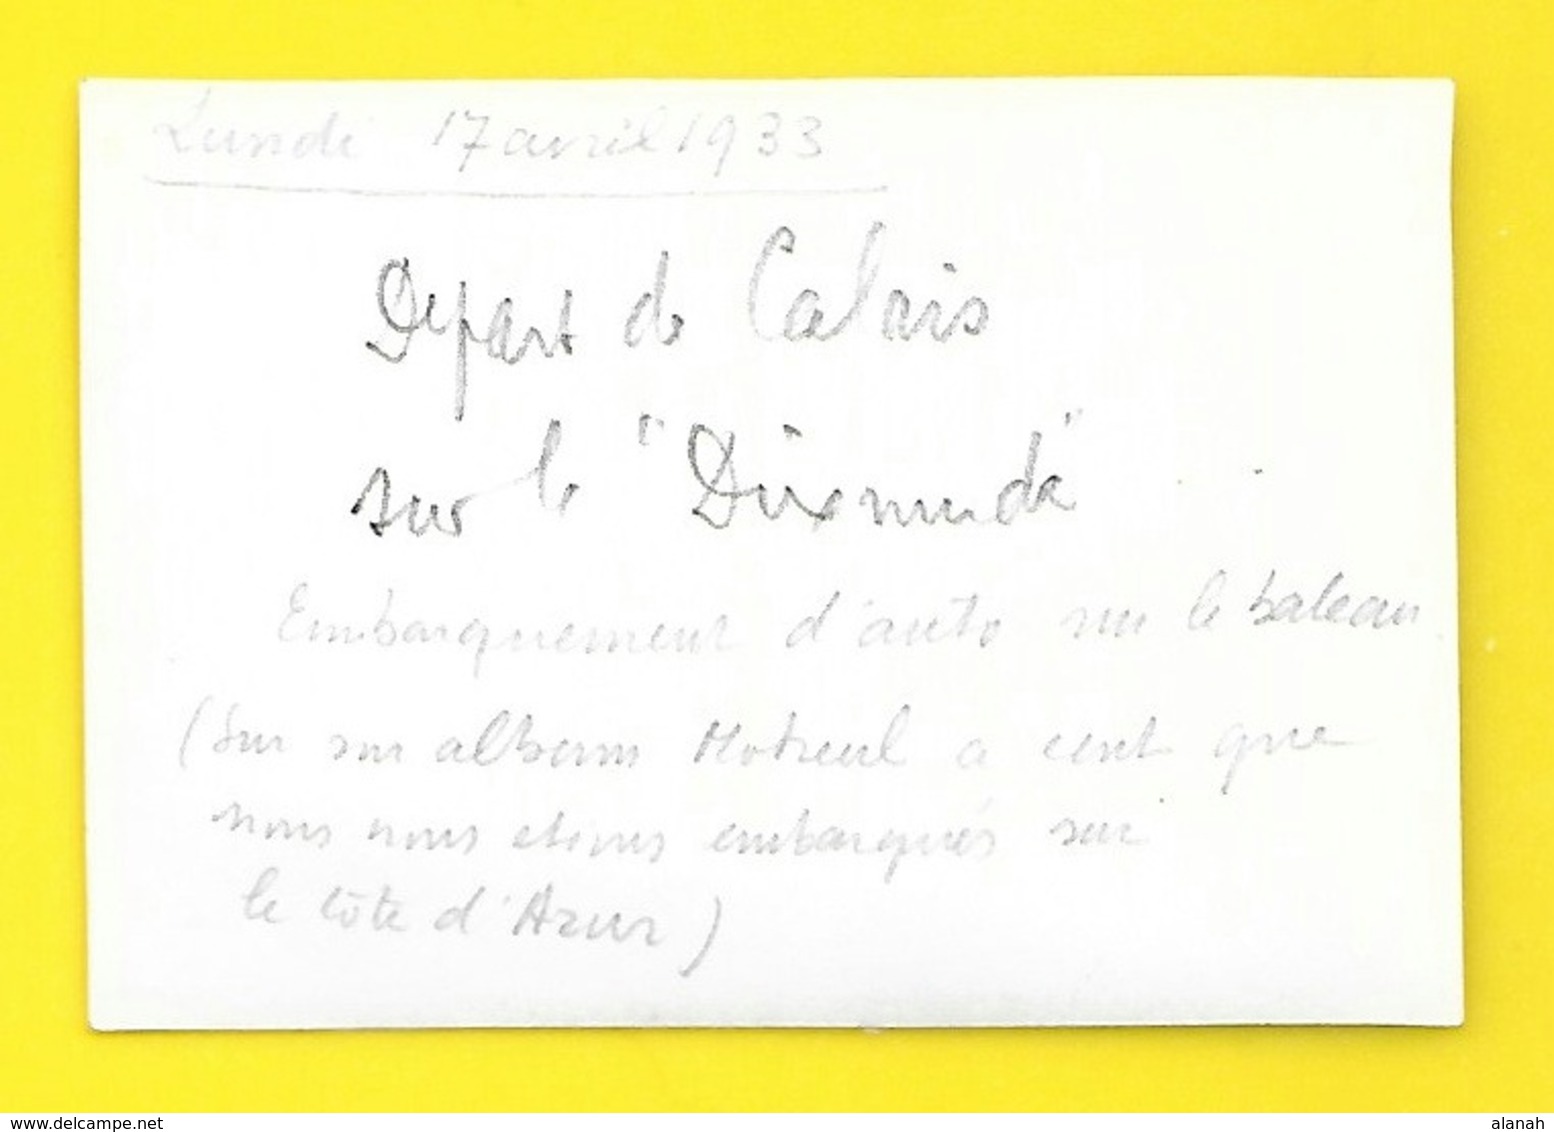 Lundi 17 avril 1933
Depart de Calais
sur le "Dixmude"
Embarquement d'auto sur le bateau
(Sur son album Motreul a ecrit que
nous nous etions embarqués sur
le côte d'Azur)
www.delcampe.net
alanah